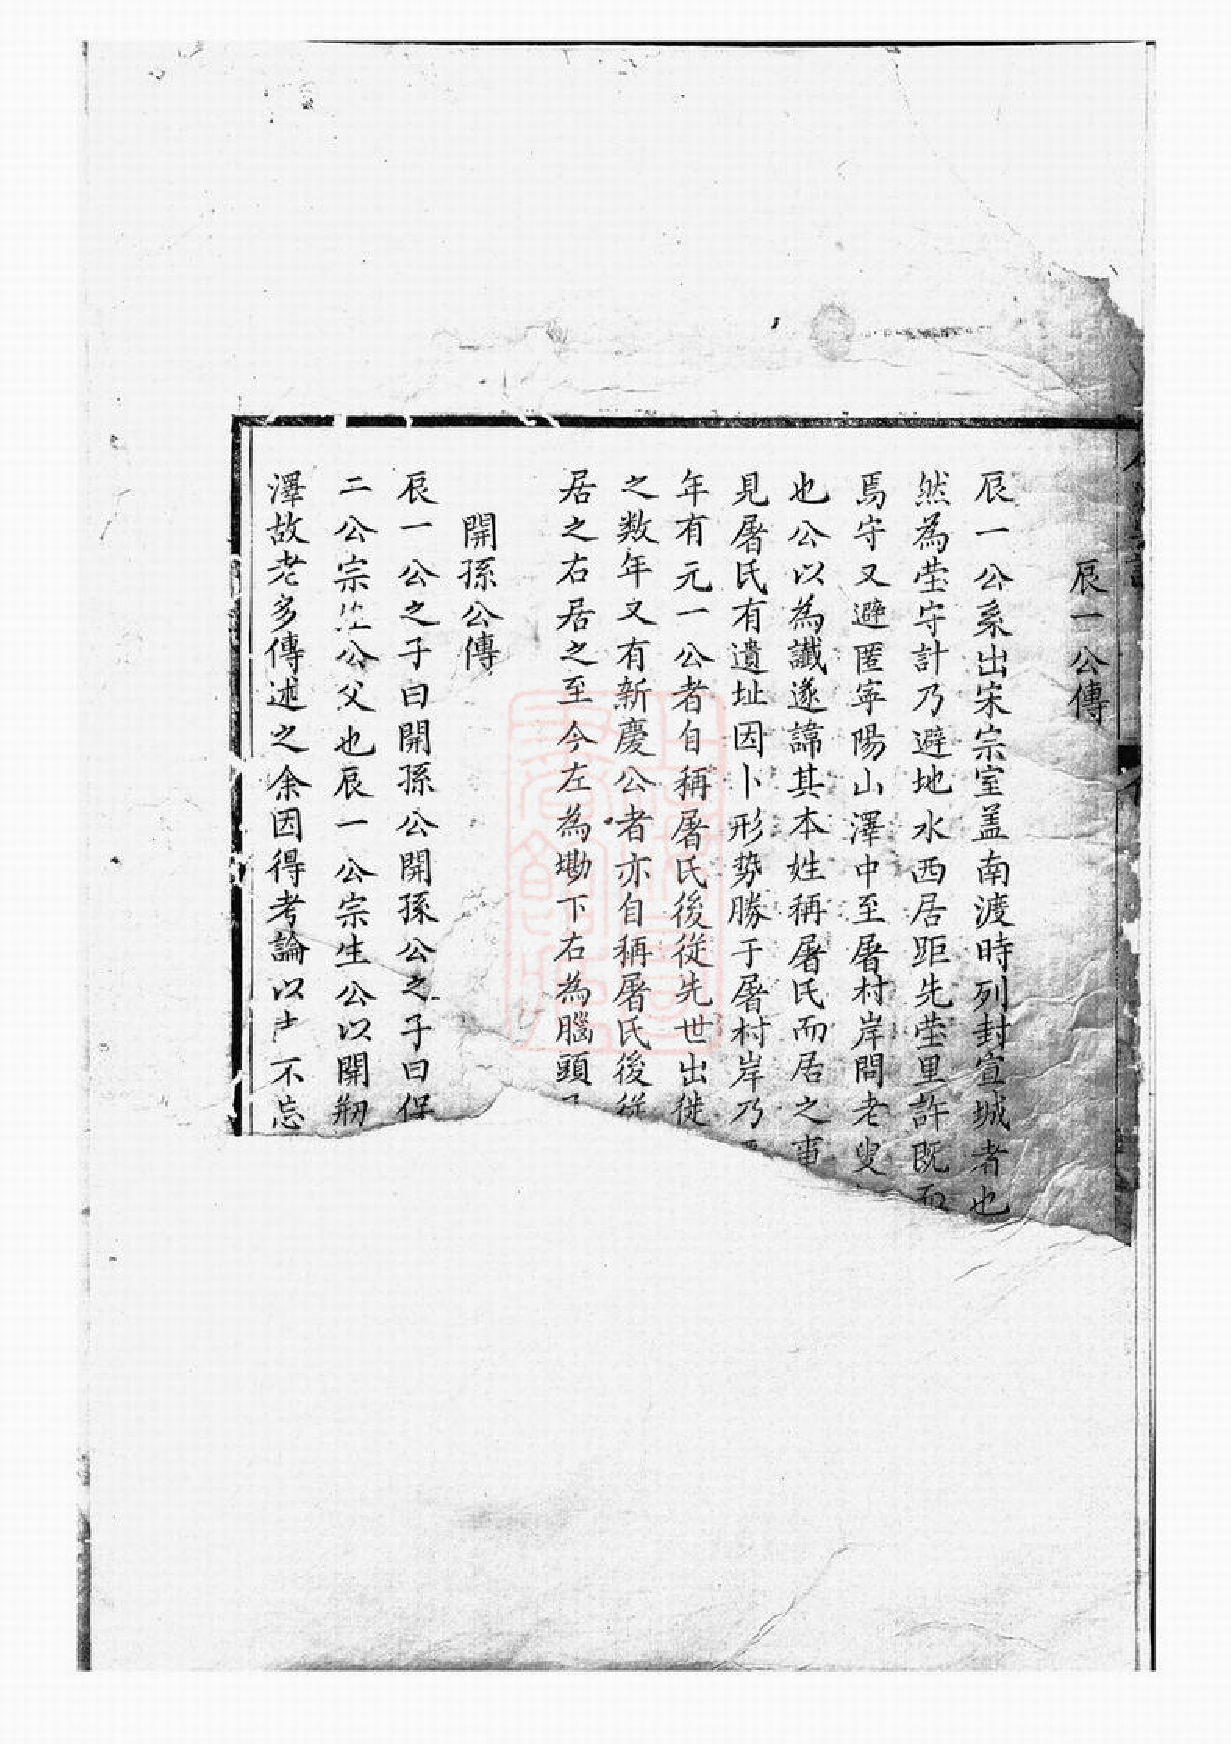 辰一公傳
辰一公系出宋宗室盖南渡時列封宣城者也
然為塋守計乃避地水西居距先塋里許既而
焉守又避匿寜陽山澤中至屠村岸問老叟
也公以為讖遂諱其本姓稱屠氏而居之事
見屠氏有遺址因卜形势勝于屠村岸乃
年有元一公者自稱屠氏後從先世出徙
之数年又有新慶公者亦自稱屠氏後從
居之右居之至今左為墈下右為腦頭
開孫公傳
辰一公之子曰開孫公開孫公之子曰保
二公宗生公父也辰一公宗生公以開刱
澤故老多傳述之余因得考論以 不忘